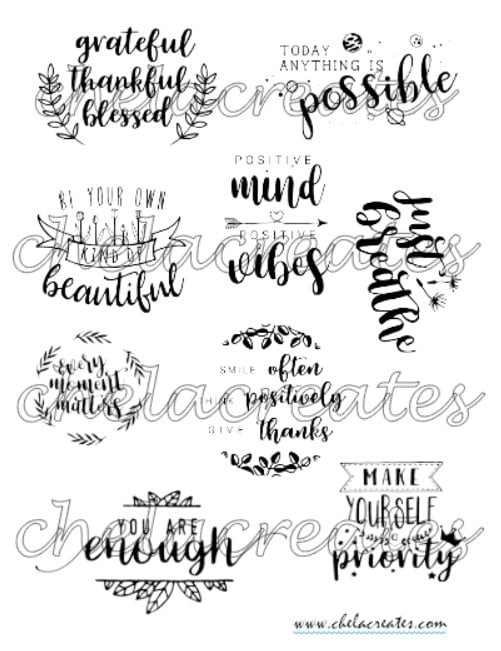 grateful
thankful
blessed
TODAY
ANYTHING IS
possible
chelacreates
POSITIVE
mind
POSITIVE
vibes
BE YOUR OWN
KIND OF
beautiful
just
breathe
chelacreates
every
moment
matters
SMILE often
THINK positively
GIVE thanks
chelacreates
YOU ARE
enough
MAKE
YOURSELF
priority
chelacreates
www.chelacreates.com